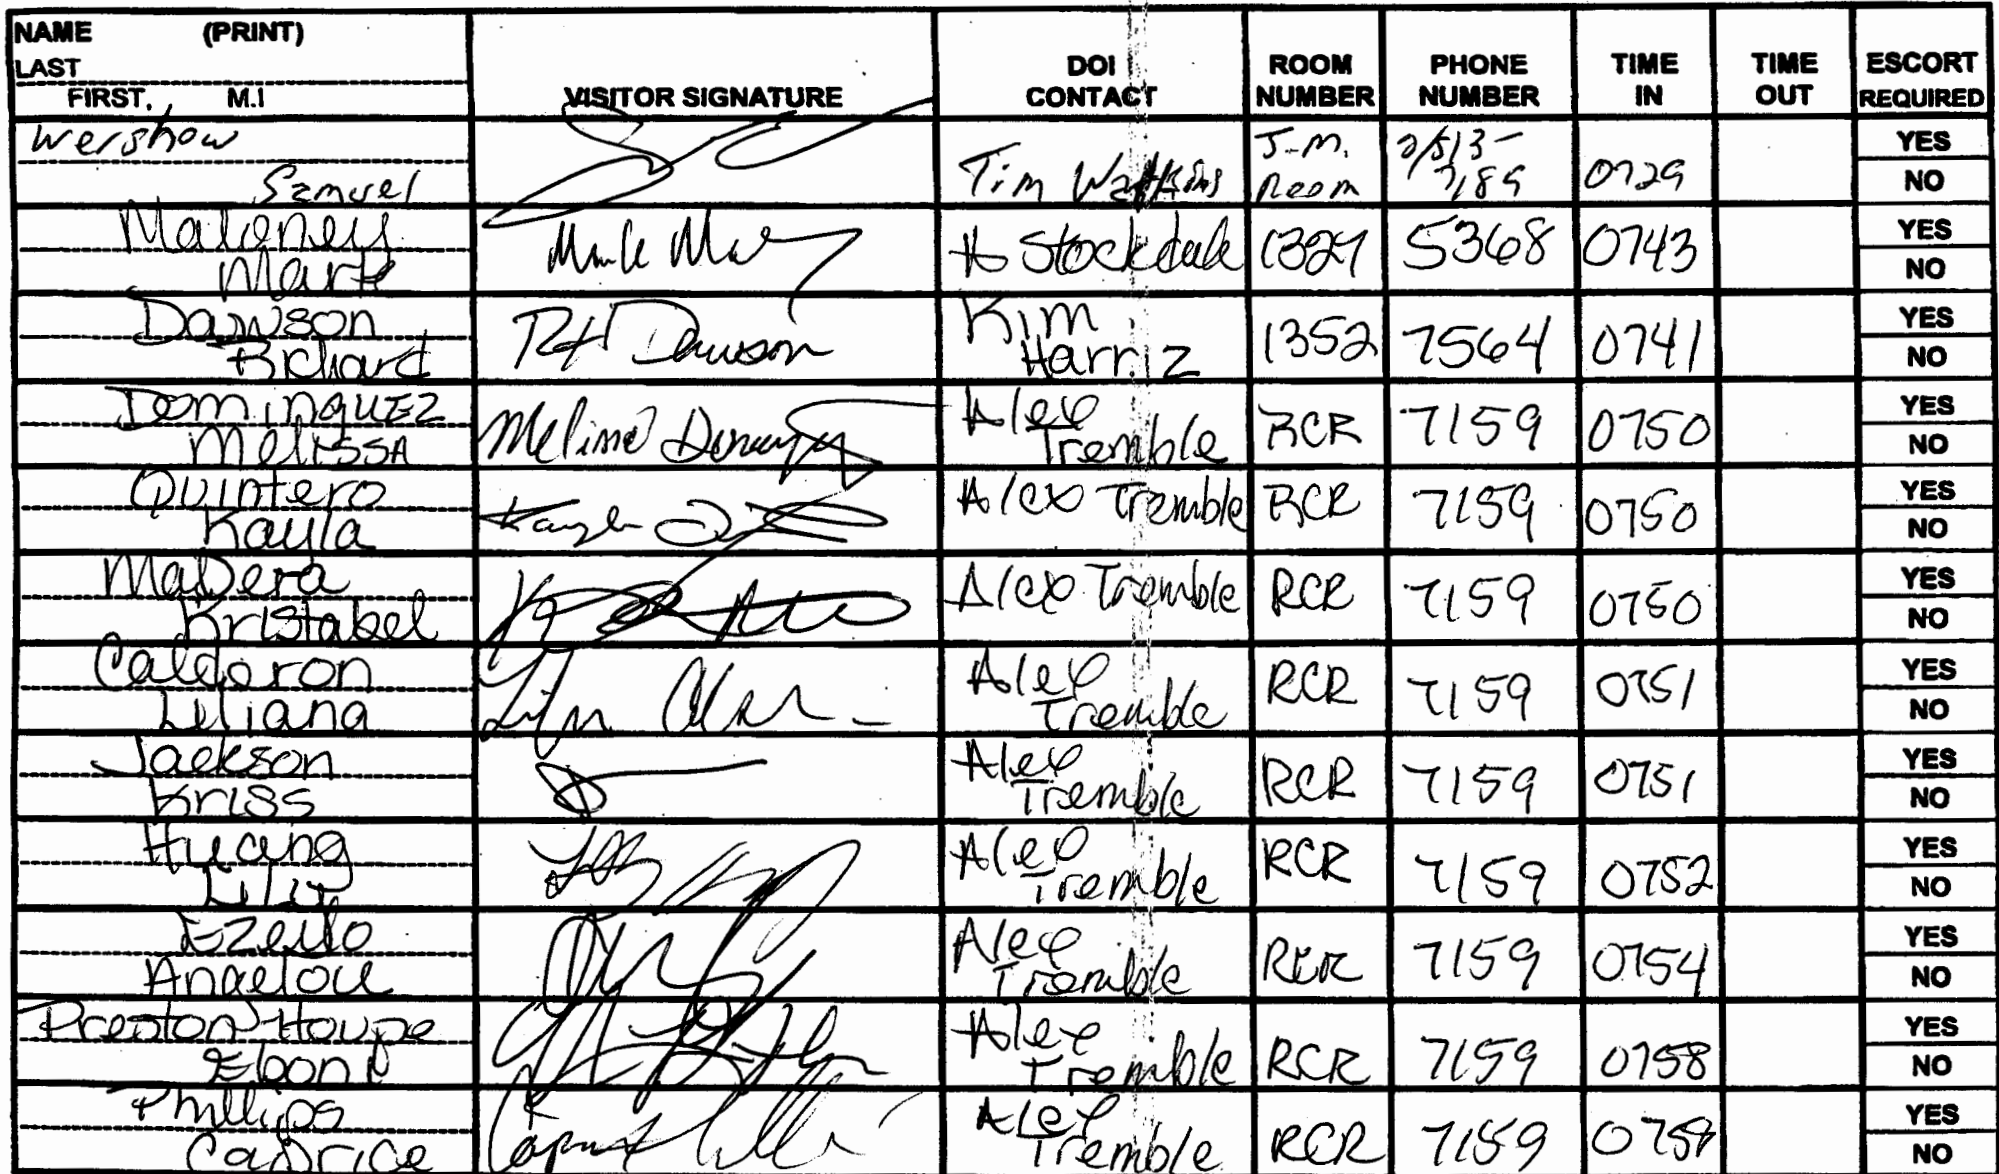 NAME (PRINT)
LAST
FIRST, M.I
VISITOR SIGNATURE
DOI CONTACT
ROOM NUMBER
PHONE NUMBER
TIME IN
TIME OUT
ESCORT REQUIRED
Wershow
Samuel
Tim Watkins
J-M. Room
0729
YES
NO
Maloney
Mark
Stockdale
1327
5368
0743
YES
NO
Dawson
Richard
RH Dawson
Kim Harriz
1352
7564
0741
YES
NO
Dominguez
Melissa
Alex Tremble
RCR
7159
0750
YES
NO
Quintero
Kayla
Alex Tremble
RCR
7159
0750
YES
NO
MaDera
Kristabel
Alex Tremble
RCR
7159
0750
YES
NO
Calderon
Liliana
Alex Tremble
RCR
7159
0751
YES
NO
Jackson
Kriss
Alex Tremble
RCR
7159
0751
YES
NO
Huang
Alex Tremble
RCR
7159
0752
YES
NO
Angelou
Alex Tremble
RCR
7159
0754
YES
NO
Preston-Houpe
Eboni
Alex Tremble
RCR
7159
0758
YES
NO
Phillips
Caprice
Alex Tremble
RCR
7159
YES
NO